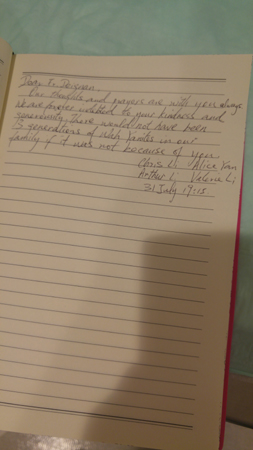 Dear Fr. Deignan,
Our thoughts and prayers are with you always
We are forever indebted to your kindness and
generosity. There would not have been
3 generations of Wah Yanites in our
family if it was not because of you.
Chris Li Alice Yan
Arthur Li Valerie Li
31 July 17:15